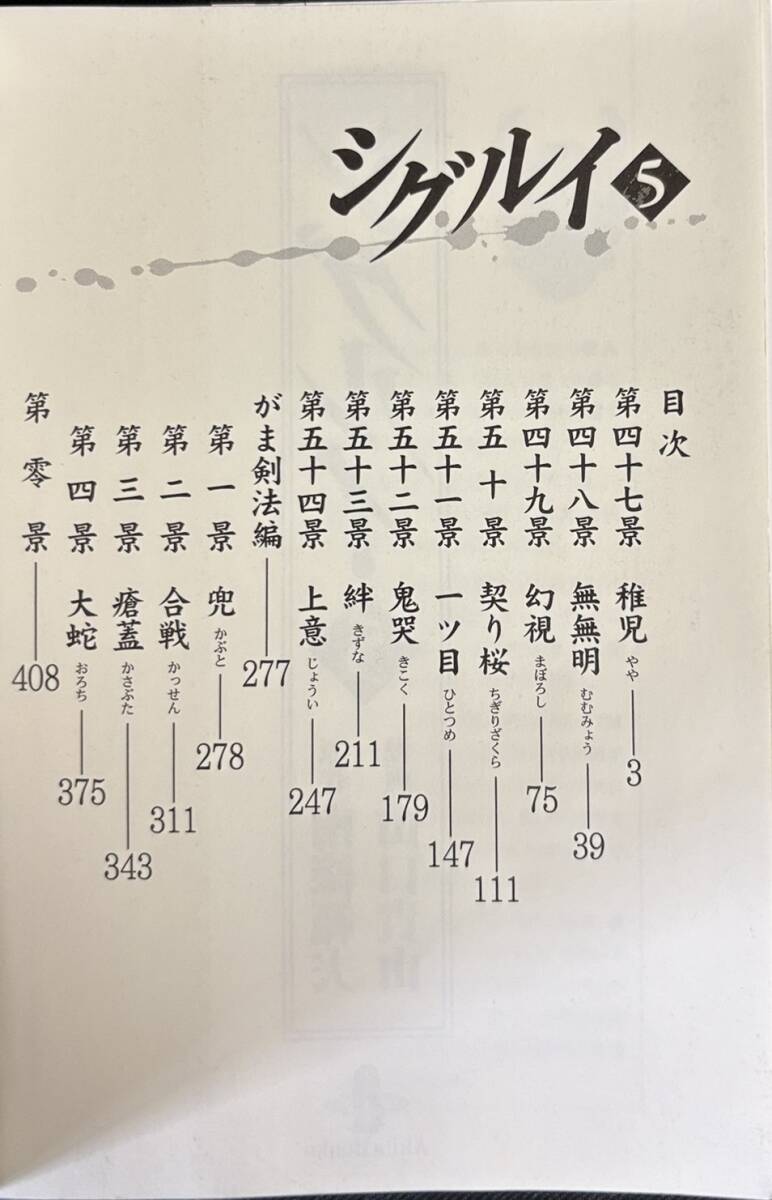 シグルイ5
目次
第四十七景 稚児 やや 3
第四十八景 無無明 むむみょう 39
第四十九景 幻視 まぼろし 75
第五十景 契り桜 ちぎりざくら 111
第五十一景 一ツ目 ひとつめ 147
第五十二景 鬼哭 きこく 179
第五十三景 絆 きずな 211
第五十四景 上意 じょうい 247
がま剣法編 277
第一景 兜 かぶと 278
第二景 合戦 かっせん 311
第三景 瘡蓋 かさぶた 343
第四景 大蛇 おろち 375
第零景 408